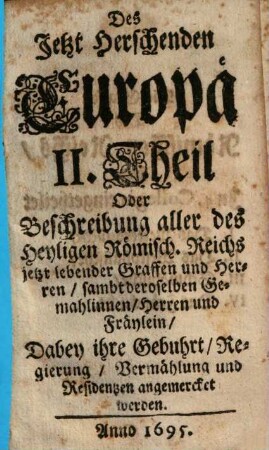 Des
Jetzt Herschenden
Europä
II. Theil
Oder
Beschreibung aller des
Heyligen Römisch. Reichs
jetzt lebender Graffen und Her-
ren / sambt deroselben Ge-
mahlinnen / Herren und
Fräylein /
Dabey ihre Gebuhrt / Re-
gierung / Vermählung und
Residentzen angemercket
werden.
Anno 1695.